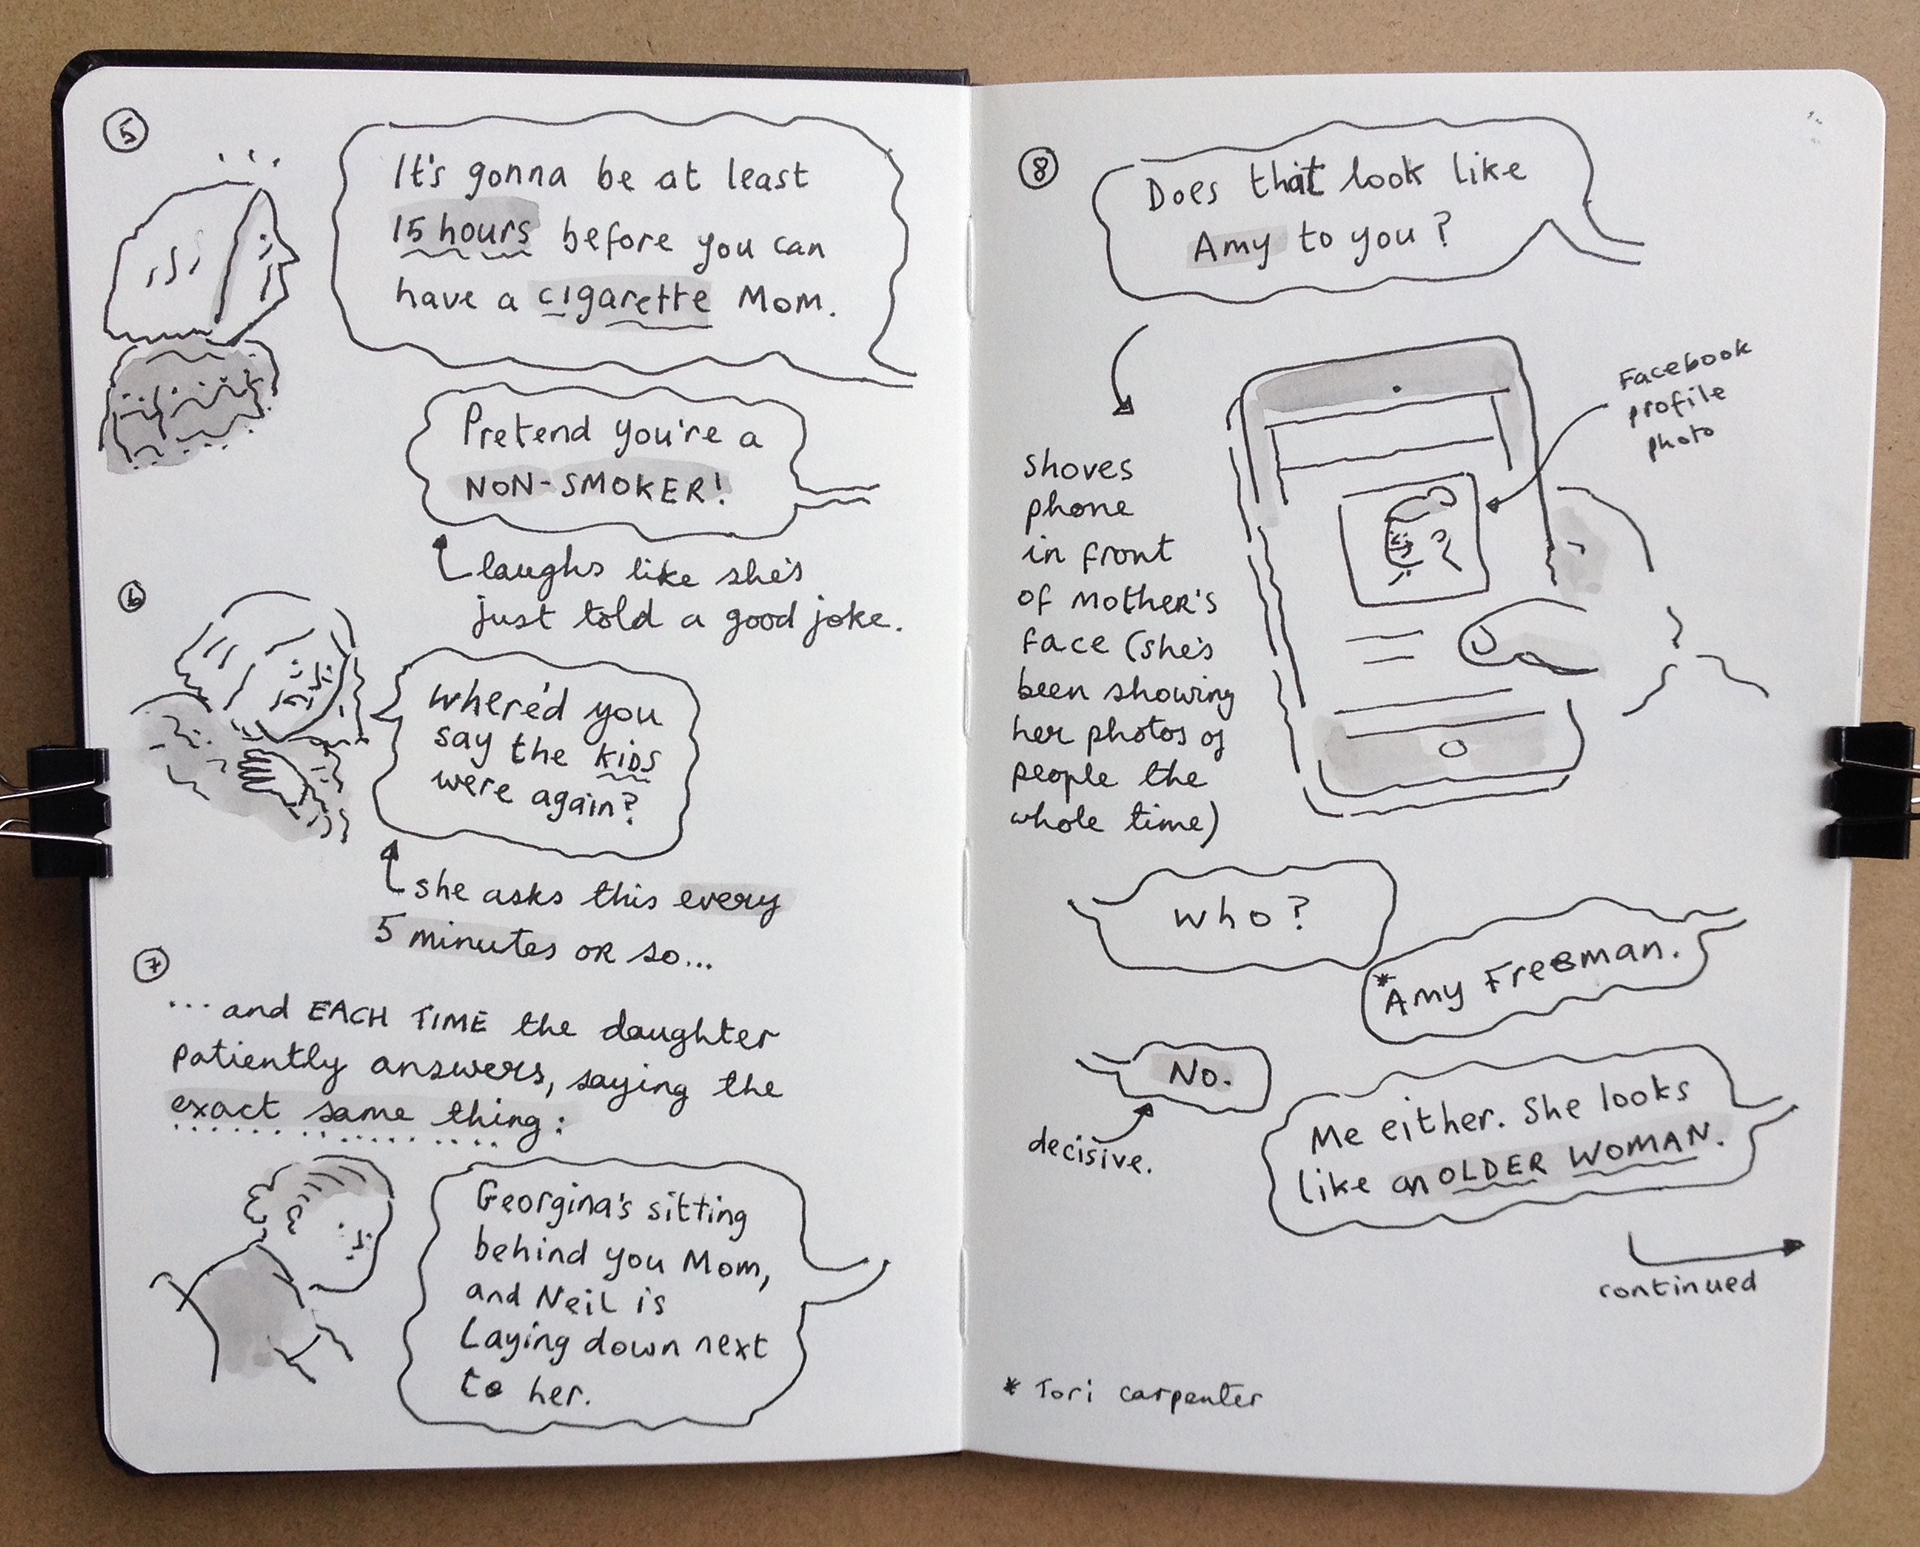 5
It's gonna be at least
15 hours before you can
have a cigarette Mom.
Pretend you're a
NON-SMOKER!
laughs like she's
just told a good joke.
6
where'd you
say the KIDS
were again?
she asks this every
5 minutes OR so...
7
...and EACH TIME the daughter
patiently answers, saying the
exact same thing:
Georgina's sitting
behind you Mom,
and Neil is
Laying down next
to her.
8
Does that look like
Amy to you?
Facebook
profile
photo
shoves
phone
in front
of MOTHER'S
face (she's
been showing
her photos of
people the
whole time)
who?
*Amy Freeman.
No.
decisive.
Me either. She looks
like an OLDER WOMAN.
continued
* Tori carpenter